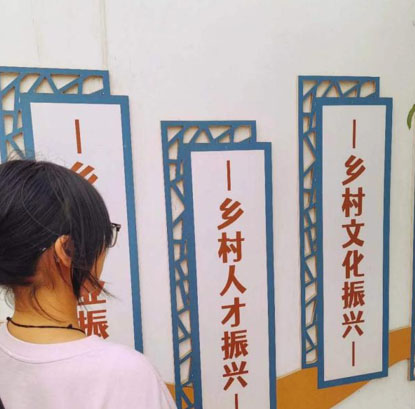 乡
业振
乡村人才振兴
乡村文化振兴